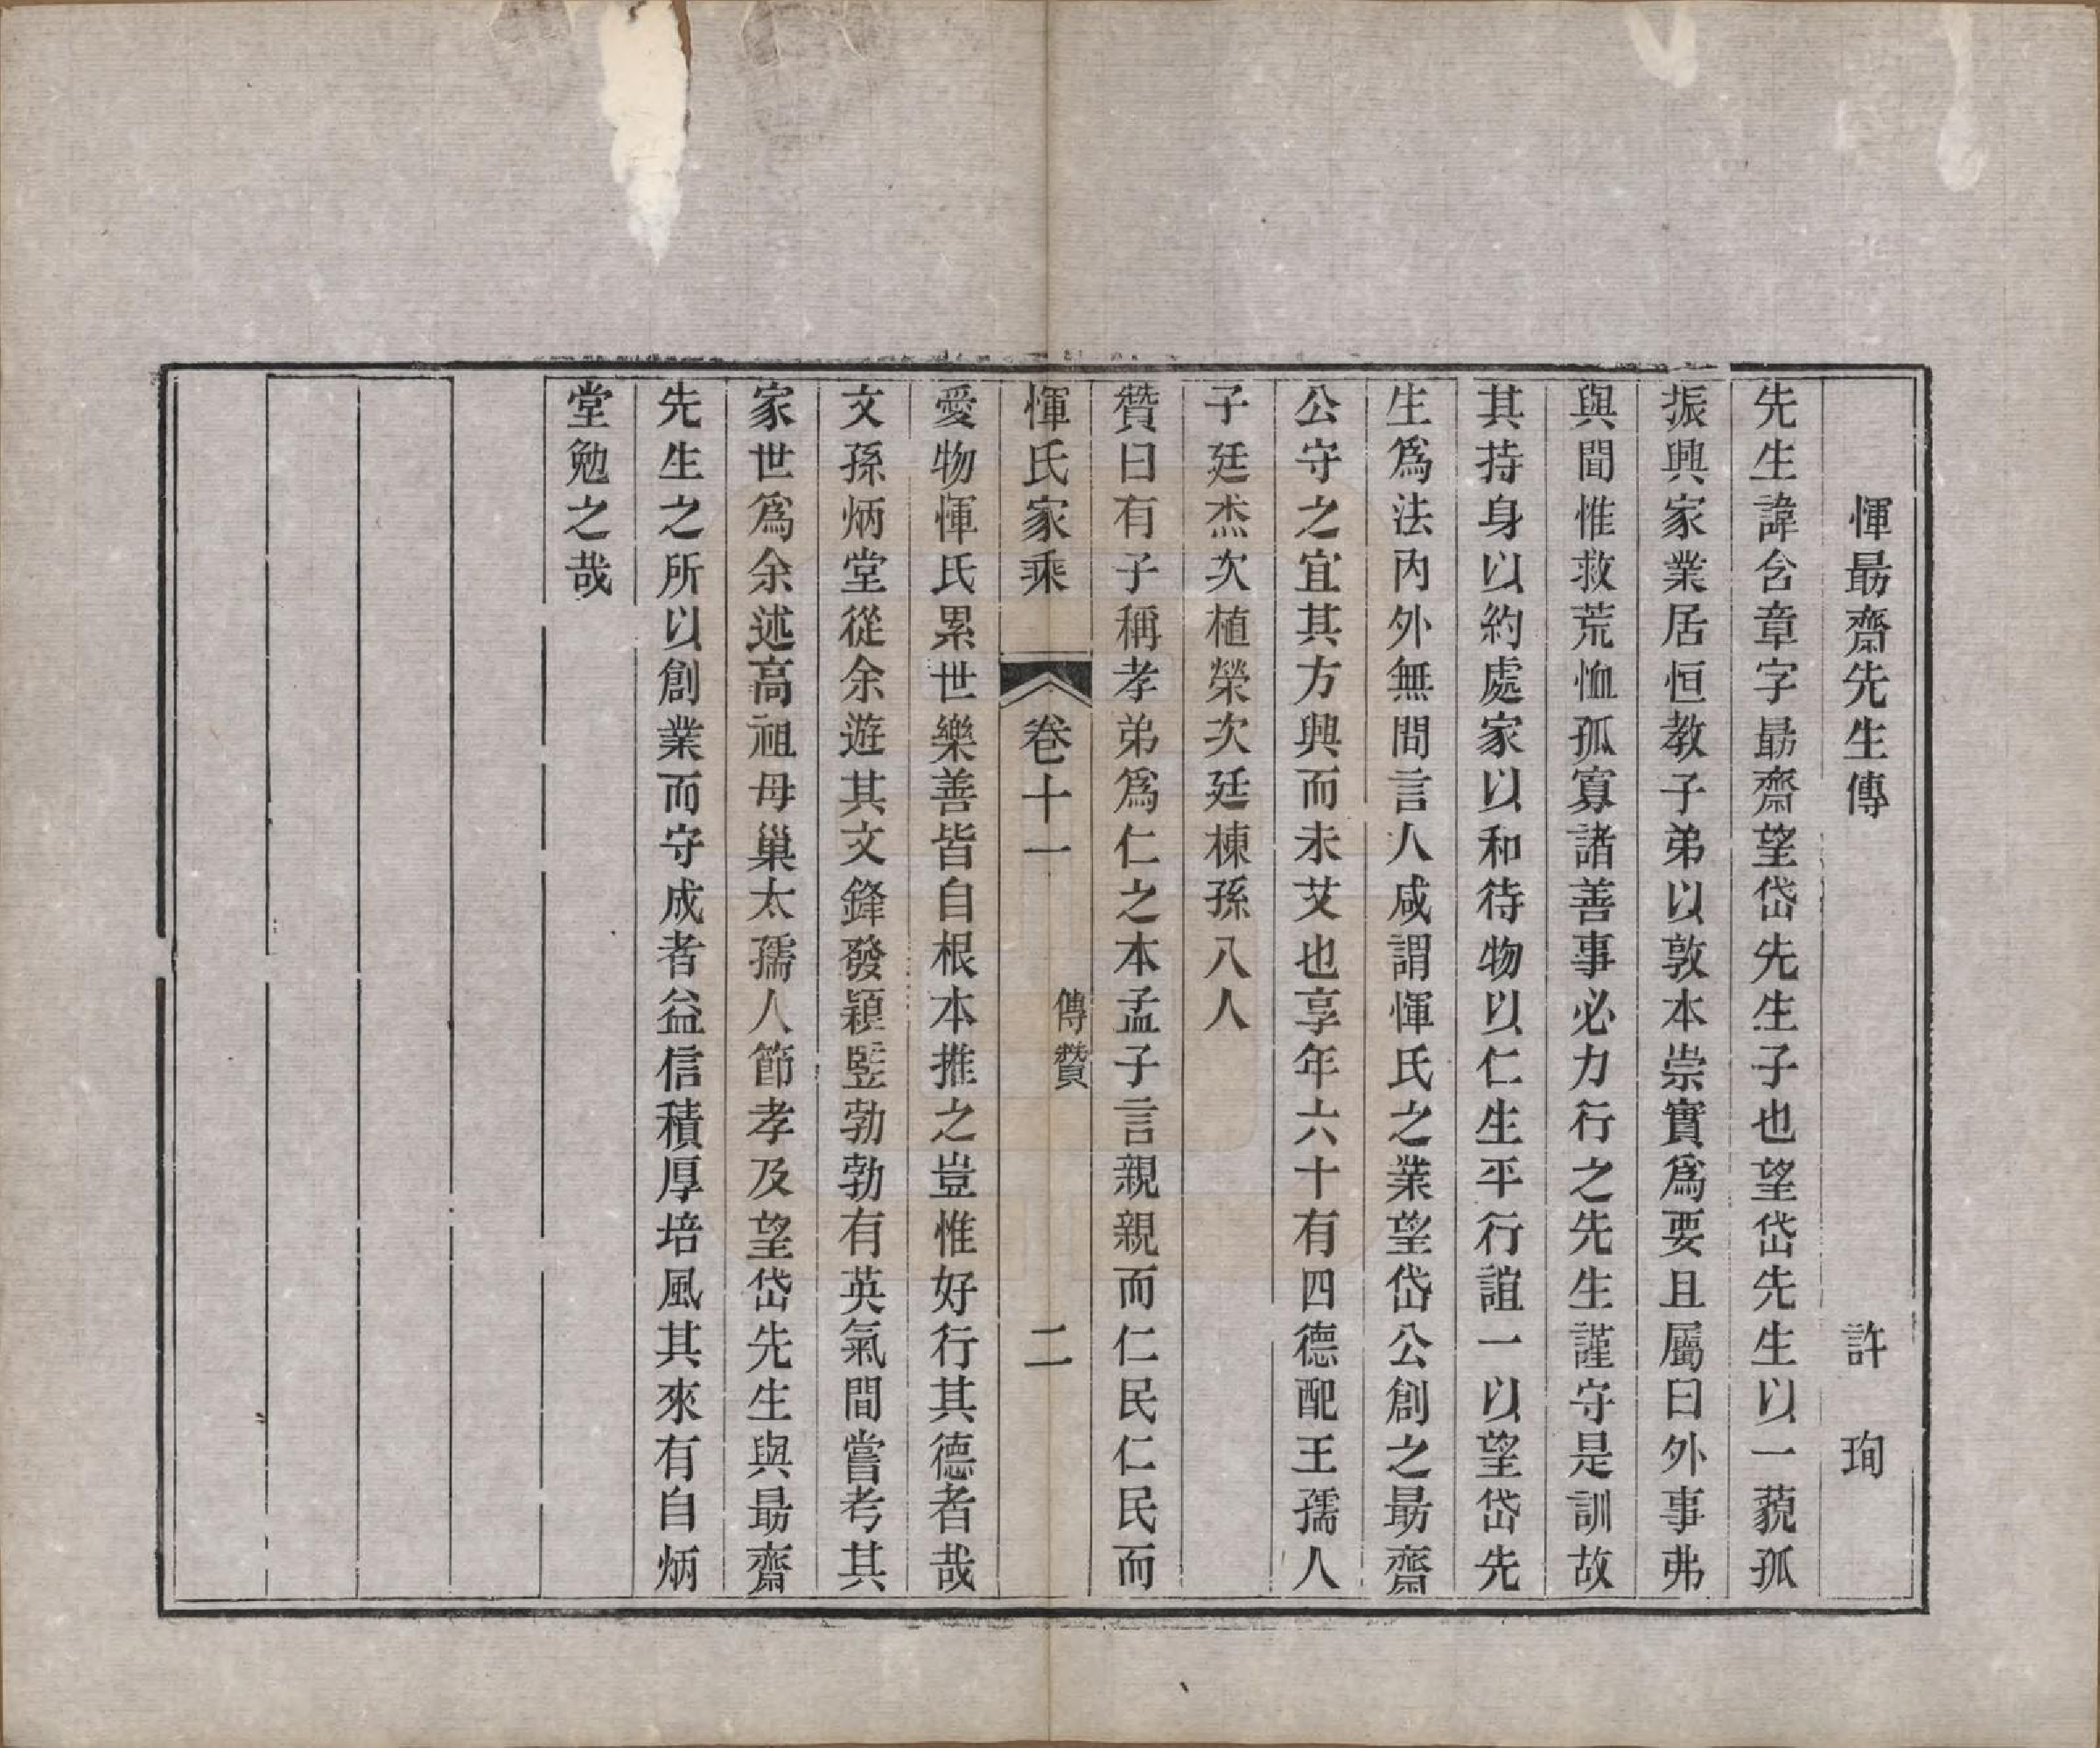 惲勗齋先生傳　許　珣
先生諱含章字勗齋望岱先生子也望岱先生以一藐孤
振興家業居恒教子弟以敦本崇實爲要且屬曰外事弗
與聞惟救荒恤孤寡諸善事必力行之先生謹守是訓故
其持身以約處家以和待物以仁生平行誼一以望岱先
生爲法內外無問言人咸謂惲氏之業望岱公創之勗齋
公守之宜其方興而未艾也享年六十有四德配王孺人
子廷杰次植榮次廷棟孫八人
贊曰有子稱孝弟爲仁之本孟子言親親而仁民仁民而
惲氏家乘　卷十一　傳贊　二
愛物惲氏累世樂善皆自根本推之豈惟好行其德者哉
文孫炳堂從余遊其文鋒發穎豎勃勃有英氣間嘗考其
家世爲余述高祖母巢太孺人節孝及望岱先生與勗齋
先生之所以創業而守成者益信積厚培風其來有自炳
堂勉之哉